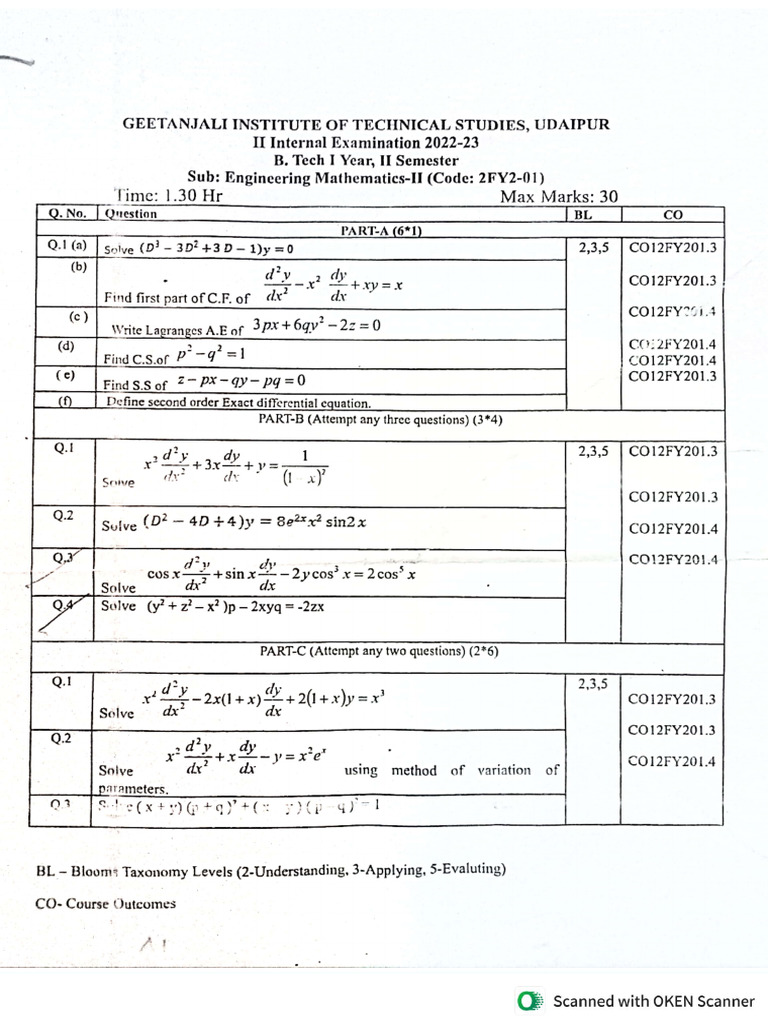 GEETANJALI INSTITUTE OF TECHNICAL STUDIES, UDAIPUR
II Internal Examination 2022-23
B. Tech I Year, II Semester
Sub: Engineering Mathematics-II (Code: 2FY2-01)
Time: 1.30 Hr Max Marks: 30
Q. No. Question BL CO
PART-A (6*1)
Q.1 (a) Solve (D³ − 3D² + 3D − 1)y = 0 2,3,5 CO12FY201.3
(b) Find first part of C.F. of d²y/dx² − x² dy/dx + xy = x CO12FY201.3
(c) Write Lagranges A.E of 3px + 6qy² − 2z = 0 CO12FY201.4
(d) Find C.S.of p² − q² = 1 CO12FY201.4
CO12FY201.4
(e) Find S.S of z − px − qy − pq = 0 CO12FY201.3
(f) Define second order Exact differential equation.
PART-B (Attempt any three questions) (3*4)
Q.1 Solve x² d²y/dx² + 3x dy/dx + y = 1/(1 − x)² 2,3,5 CO12FY201.3
CO12FY201.3
Q.2 Solve (D² − 4D + 4)y = 8e²ˣx² sin2x CO12FY201.4
Q.3 Solve cos x d²y/dx² + sin x dy/dx − 2y cos³ x = 2 cos⁵ x CO12FY201.4
Q.4 Solve (y² + z² – x² )p – 2xyq = -2zx
PART-C (Attempt any two questions) (2*6)
Q.1 Solve x² d²y/dx² − 2x(1 + x) dy/dx + 2(1 + x)y = x³ 2,3,5 CO12FY201.3
CO12FY201.3
Q.2 Solve x² d²y/dx² + x dy/dx − y = x²eˣ using method of variation of CO12FY201.4
parameters.
Q.3 Solve (x + y)(p + q)² + (x − y)(p − q)² = 1
BL – Blooms Taxonomy Levels (2-Understanding, 3-Applying, 5-Evaluting)
CO- Course Outcomes
Scanned with OKEN Scanner